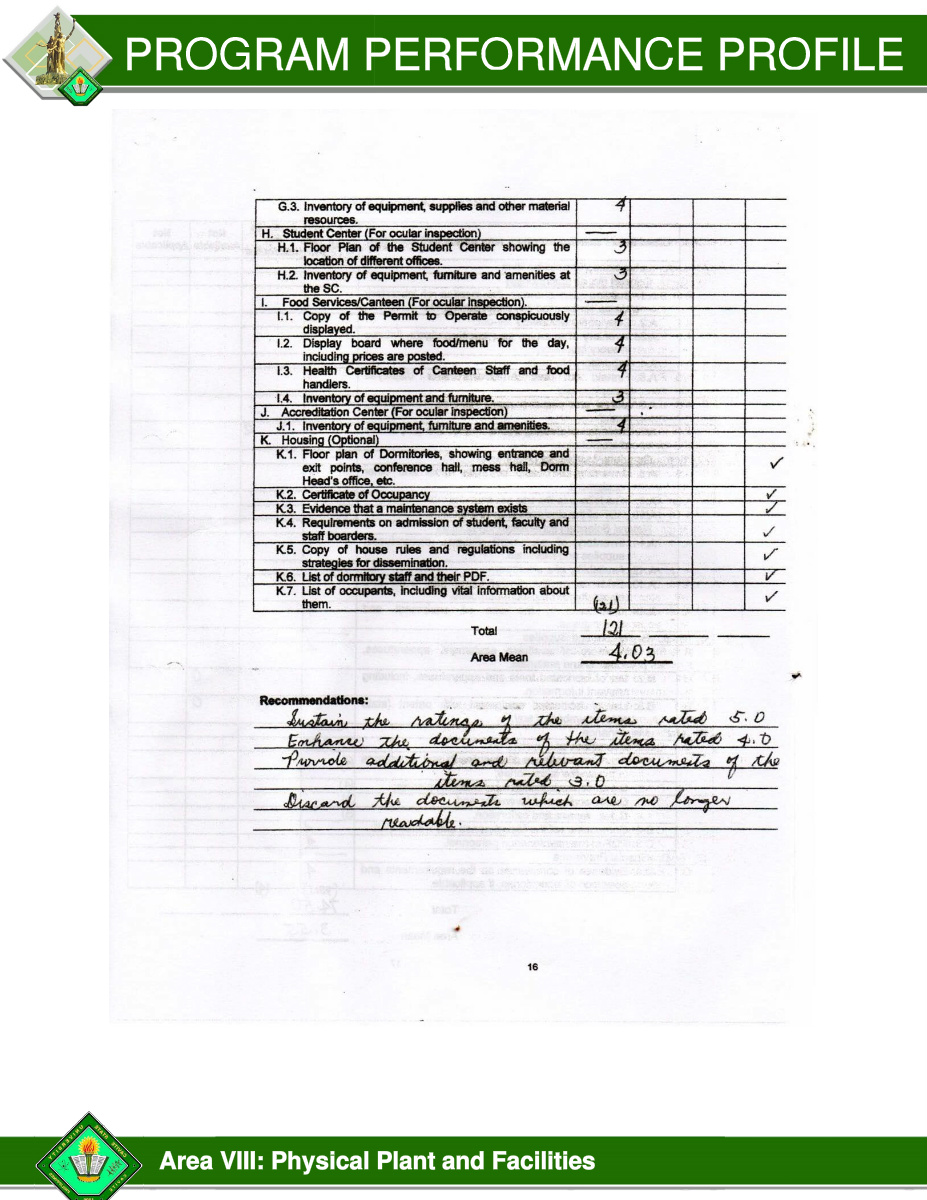 PROGRAM PERFORMANCE PROFILE
G.3. Inventory of equipment, supplies and other material 4
resources.
H. Student Center (For ocular inspection) —
H.1. Floor Plan of the Student Center showing the 3
location of different offices.
H.2. Inventory of equipment, furniture and amenities at 3
the SC.
I. Food Services/Canteen (For ocular inspection). —
I.1. Copy of the Permit to Operate conspicuously 4
displayed.
I.2. Display board where food/menu for the day, 4
including prices are posted.
I.3. Health Certificates of Canteen Staff and food 4
handlers.
I.4. Inventory of equipment and furniture. 3
J. Accreditation Center (For ocular inspection) —
J.1. Inventory of equipment, furniture and amenities. 4
K. Housing (Optional) —
K.1. Floor plan of Dormitories, showing entrance and
exit points, conference hall, mess hall, Dorm ✓
Head's office, etc.
K.2. Certificate of Occupancy ✓
K.3. Evidence that a maintenance system exists ✓
K.4. Requirements on admission of student, faculty and
staff boarders. ✓
K.5. Copy of house rules and regulations including
strategies for dissemination. ✓
K.6. List of dormitory staff and their PDF. ✓
K.7. List of occupants, including vital information about ✓
them. (121)
Total 121
Area Mean 4.03
Recommendations:
Sustain the ratings of the items rated 5.0
Enhance the documents of the items rated 4.0
Provide additional and relevant documents of the
items rated 3.0
Discard the documents which are no longer
readable.
16
Area VIII: Physical Plant and Facilities